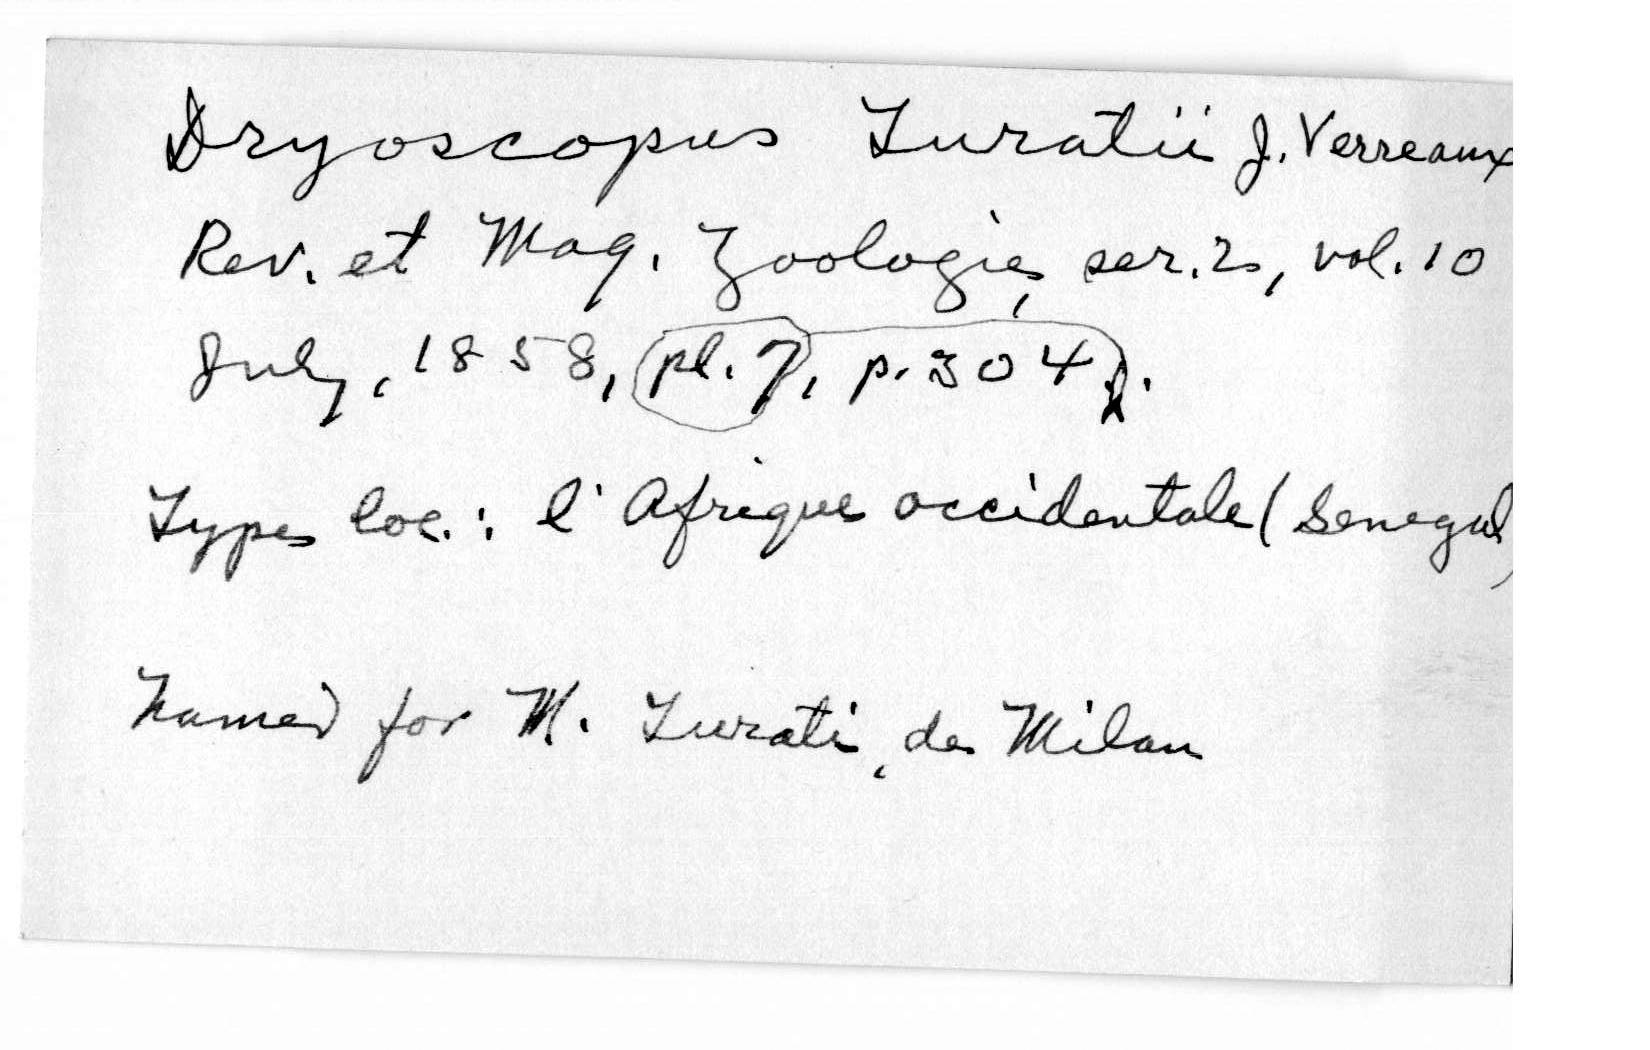 Dryoscopus Turatii J. Verreaux
Rev. et Mag. Zoologie, ser. 2, vol. 10
July, 1858, pl. 7, p. 304.
Type loc.: l'Afrique occidentale (Senegal)
Named for M. Turati, de Milan